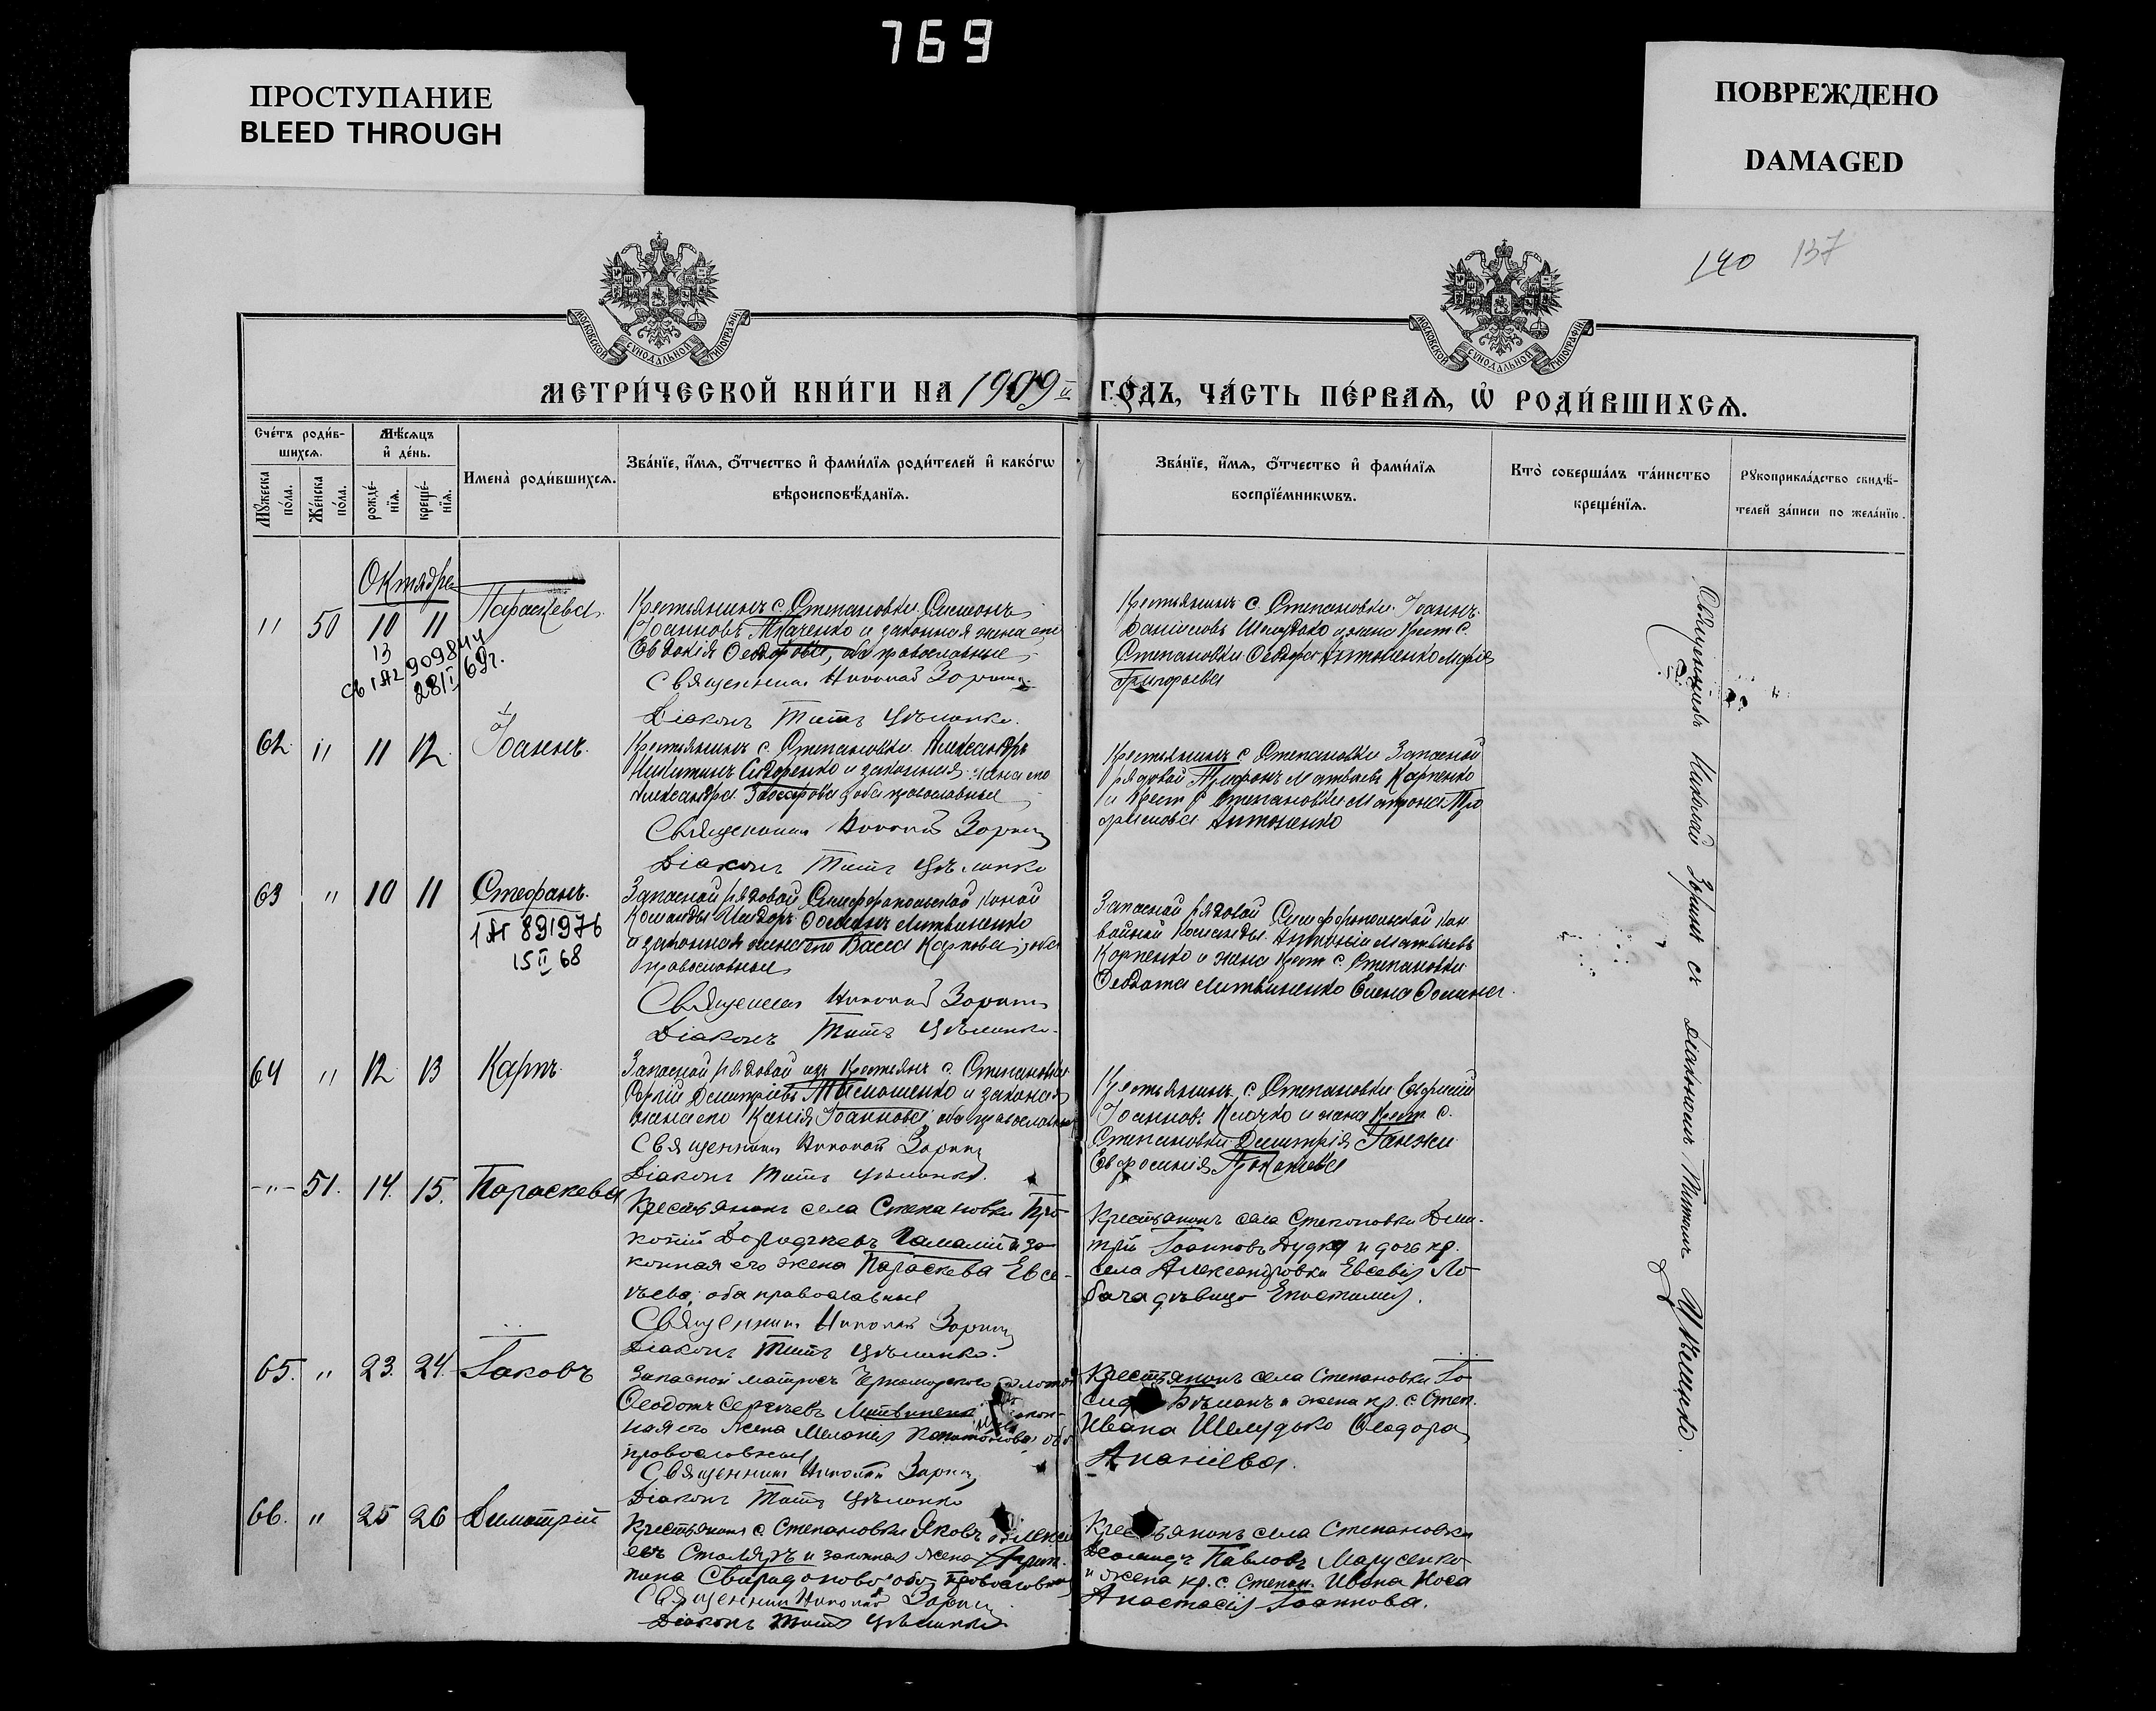 769
ПРОСТУПАНИЕ
BLEED THROUGH
ПОВРЕЖДЕНО
DAMAGED
140 137
МОСКОВСКОЙ СѴНОДАЛЬНОЙ ТИПОГРАФІИ
МОСКОВСКОЙ СѴНОДАЛЬНОЙ ТИПОГРАФІИ
МЕТРИ́ЧЕСКОЙ КНИ́ГИ НА 1909 й ГО́ДЪ, ЧА́СТЬ ПЕ́РВАѦ, Ѡ҆ РОДИ́ВШИХСѦ.
Сче́тъ роди́в-
шихсѧ.
Мꙋ́жеска по́ла.
Же́нска по́ла.
Мѣ́сѧцъ
и҆ де́нь.
рожде́-нїѧ.
креще́-нїѧ.
Имена̀ роди́вшихсѧ.
Зва́нїе, и҆́мѧ, ѻ҆́тчество и҆ фами́лїѧ роди́телей и҆ како́гѡ
вѣроисповѣ́данїѧ.
Зва́нїе, и҆́мѧ, ѻ҆́тчество и҆ фами́лїѧ
воспрїе́мникѡвъ.
Кто̀ соверша́лъ та́инство
креще́нїѧ.
Рꙋкоприкла́дство свидѣ́-
телей за́писи по жела́нїю.
Октябрь
" 50 10 11 Параскева
13
Св 1 АГ 909844
28/I 69г.
Крестьянинъ с. Степановки Симеонъ
Іоанновъ Ткаченко и законная жена его
Евдокія Ѳеодорова, оба православные
Священникъ Николай Зоринъ
Діаконъ Титъ Цѣлинко.
Крестьянинъ с. Степановки Іоаннъ
Даніиловъ Шелудько и жена Крест. с.
Степановки Ѳеодора Антоненко Марія
Григорьева
62 " 11 12 Іоаннъ.
Крестьянинъ с. Степановки Александръ
Никитинъ Сидоренко и законная жена его
Александра Захарова, оба православные
Священникъ Николай Зоринъ
Діаконъ Титъ Цѣлинко
Крестьянинъ с. Степановки Запасной
рядовой Трифонъ Матвѣевъ Карпенко
и Крест. с. Степановки Матрона
Антоненко
63 " 10 11 Стефанъ.
1 АГ 891976
15 II 68
Запасной рядовой Симферопольской
Команды Исидоръ Ѳоминъ Литвиненко
и законная жена его Васса Карпова, оба
православные
Священникъ Николай Зоринъ
Діаконъ Титъ Цѣлинко.
Запасной рядовой Симферопольской Кон
войной Команды Антоній Матвѣевъ
Карпенко и жена крест. с. Степановки
Ѳеодота Литвиненко Елена Ѳомина.
64 " 12 13 Карпъ
Запасной рядовой изъ Крестьянъ с. Степановки
Димитріевъ Тимошенко и законная
жена его Ксенія Іоаннова, оба православные
Священникъ Николай Зоринъ
Діаконъ Титъ Цѣлинко.
Крестьянинъ с. Степановки Евфимій
Іоанновъ Клочко и жена Крест. с.
Степановки Димитрія Ганжи
Евфросинія Прокопіева
-"- 51. 14. 15. Параскева
Крестьянинъ села Степановки Про-
копій Дорофеевъ Гамалій и за-
конная его жена Параскева Евсе-
вьева, оба православные
Священникъ Николай Зоринъ
Діаконъ Титъ Цѣлинко.
Крестьянинъ села Степановки Дими-
трій Іоанновъ Дудка и дочь кр.
села Александровки Евсевія Ло-
бача дѣвица Епистимія.
65. " 23. 24. Іаковъ
Запасной матросъ Черноморского флота
Ѳеодотъ Сергѣевъ Литвиненко закон-
ная его жена Меланія оба
православные
Священникъ Николай Зоринъ
Діаконъ Титъ Цѣлинко
Крестьянинъ села Степановки
Бѣланъ и жена кр. с. Степ.
Ивана Шелудько Ѳеодора
Ананіева.
66. " 25 26 Димитрій
Крестьянинъ с. Степановки Яковъ Алексѣ
евъ Столяръ и законная жена Агрип-
пина Свиридонова оба православные
Священникъ Николай Зоринъ
Діаконъ Титъ Цѣлинко
Крестьянинъ села Степановки
Павловъ Марусенко
и жена кр. с. Степан. Ивана Носа
Анастасія Іоаннова.
Священникъ Николай Зоринъ съ діакономъ Титомъ Цѣлинко.